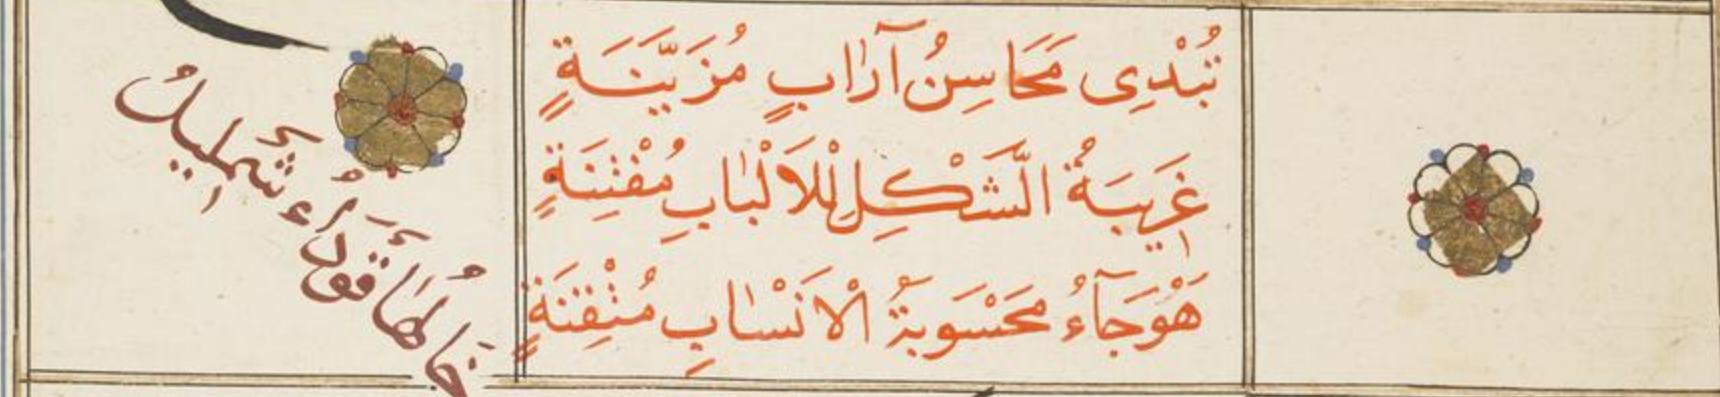 تُبْدِى مَحَاسِنُ آرَابٍ مُزَيَّنَةٍ
غَرِيبَةُ الشَّكْلِ لِلْاَلْبَابِ مُفْتِنَةٍ
هَوْجَآءُ مَحْسُوبَةُ الْاَنْسَابِ مُتْقِنَةٍ
خَالُهَا قَوْدَاءُ شَمْلِيلُ